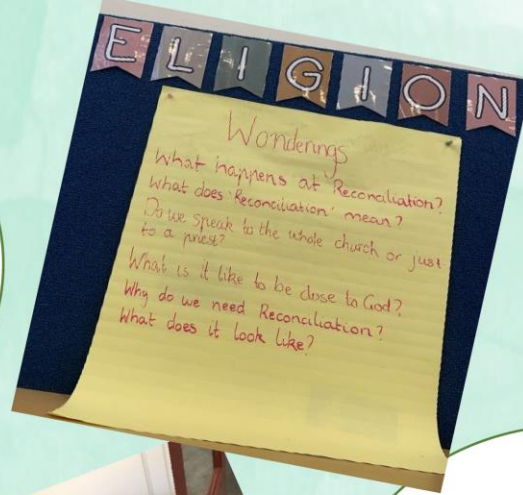 ELIGION
Wonderings
What happens at Reconciliation?
What does 'Reconciliation' mean?
Do we speak to the whole church or just
to a priest?
What is it like to be close to God?
Why do we need Reconciliation?
What does it look like?